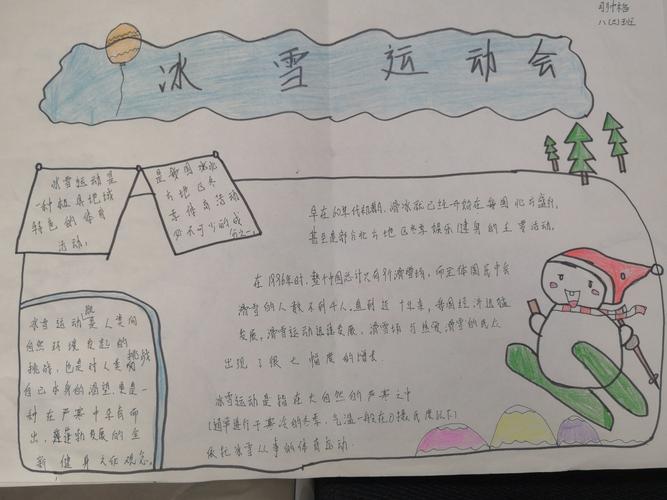 八(二)班
冰雪运动会
冰雪运动是
一种极具地域
特色的体育
活动,
是我国冰
方地区冬
季体育活动
必不可少的成
分之一。
早在60年代初期,滑冰就已经开始在我国北方盛行,
甚至是部分北方地区冬季娱乐健身的主要活动。
在1996年时,整个中国总计只有9个滑雪场,而全体国民中会
滑雪的人数不到千人,直到近十年来,我国经济迅猛
发展,滑雪运动迅速发展,滑雪场与热爱滑雪的民众
出现了很大幅度的增长.
冰雪运动是指在大自然的严寒之中
(通常进行于寒冷的冬季,气温一般在0摄氏度以下)
依托冰雪从事的体育运动.
冰雪运动既是人类向
自然环境发起的
挑战,也是对人类的挑战
自己本身的渴望,更是一
种在严寒中孕育而
出,蓬蓬勃发展的全
新健身文化观念。